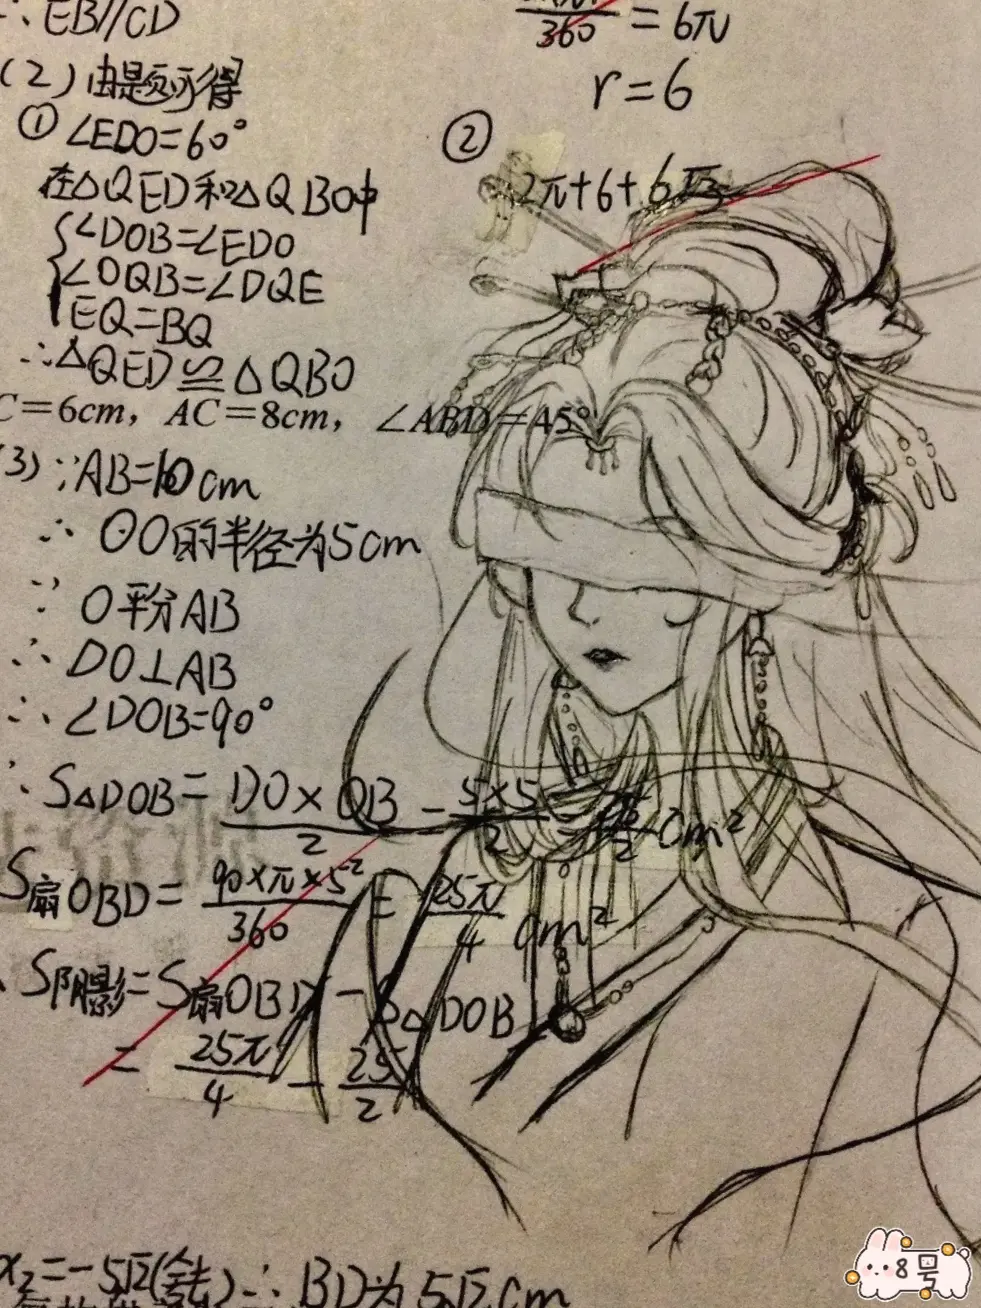 ∴ EB//CD
(2) 由题可得
① ∠EDO=60°
在△QED和△QBO中
∠DOB=∠EDO
∠OQB=∠DQE
EQ=BQ
∴△QED≌△QBO
C=6cm, AC=8cm, ∠ABD=45°
(3) ∵AB=10cm
∴ ⊙O的半径为5cm
∵ O平分AB
∴ DO⊥AB
∴ ∠DOB=90°
∴ S△DOB= DO×OB/2 = 5×5/2 = 25/2 cm²
S扇OBD= 90×π×5²/360 = 25π/4 cm²
S阴影=S扇OBD-S△DOB
= 25π/4 - 25/2
x₂=-5√2(舍去)∴BD为5√2cm
360 = 6π
r=6
②
2π+6+6√3
8号